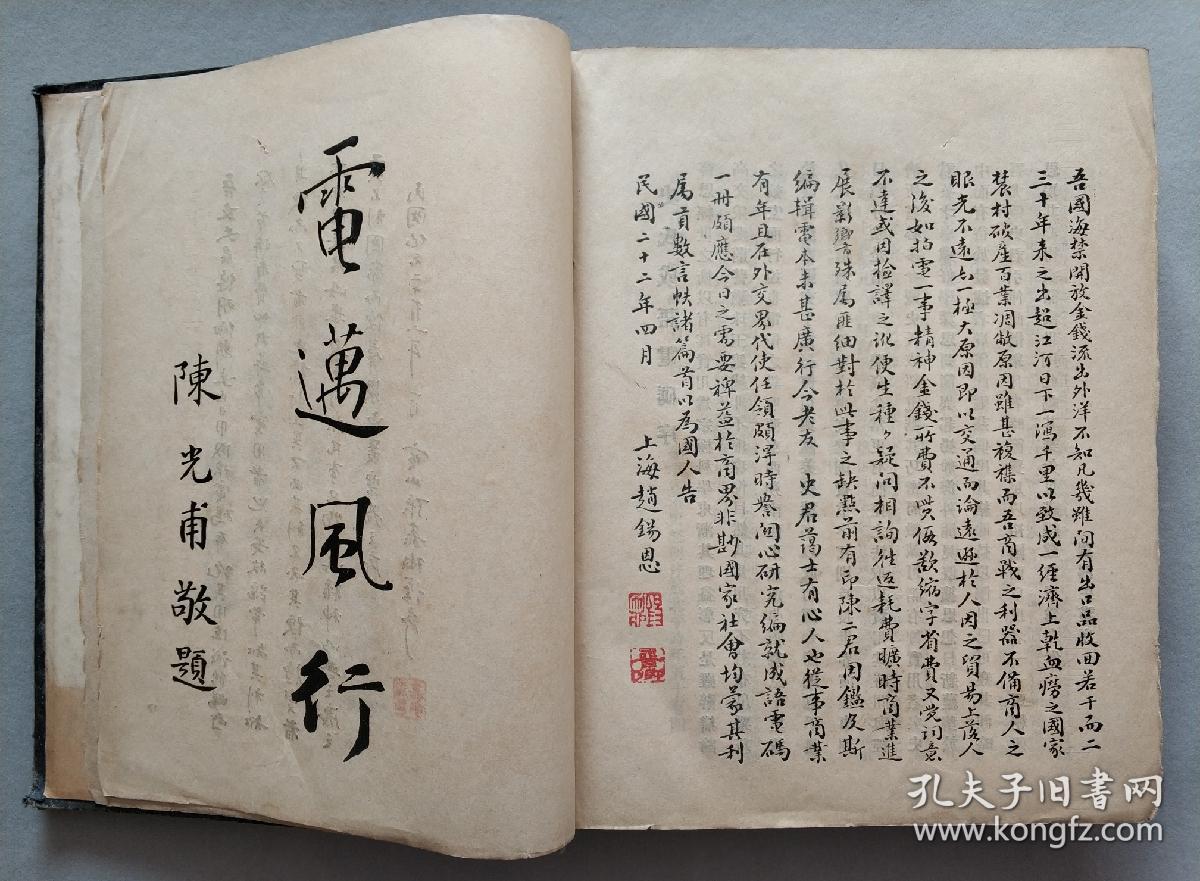 吾國海禁開放金錢流出外洋不知凡幾雖间有出口品收回若干而二
三十年来之出超江河日下一瀉千里以致成一經濟上乾血癆之國家
農村破産百業凋敝原因雖甚複襍而吾商戰之利器不備商人之
眼光不遠亦一極大原因即以交通而論遠遜於人因之貿易上落人
之後如拍電一事精神金錢所費不貲偶欲縮字省費又覺词意
不達或因檢譯之訛便生種々疑问相詢往返耗費曠時商業進
展影響殊属匪细對於此事之缺點前有印陳二君因鑑及斯
編輯電本未甚廣行今老友 史君蔼士有心人也從事商業
有年且在外交界代使任領頗浔時譽洄心研究編就成語電碼
一册頗應今日之需要裨益於商界非尠國家社會均蒙其利
属貢數言帙諸篇首以為國人告
民國二十二年四月 上海趙錫恩
電邁風行
陳光甫敬題
孔夫子旧书网
www.kongfz.com